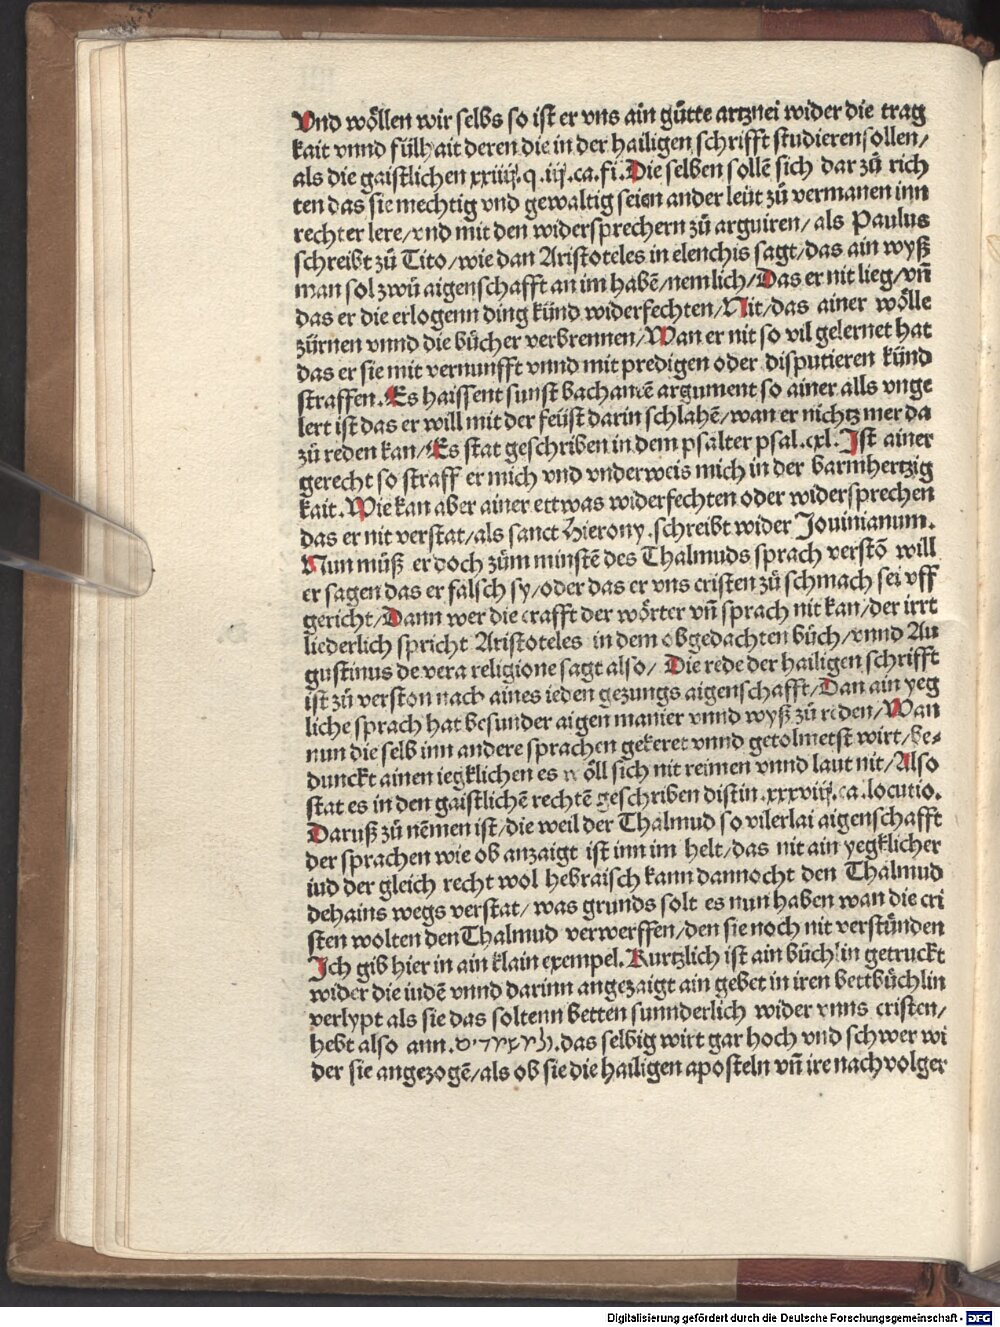 Vnd wo̊llen wir selbs so ist er vns ain gůtte artznei wider die trag
kait vnnd fülhait deren die in der hailigen schrifft studieren sollen/
als die gaistlichen xxiiij. q. iij. ca. fi. Die selben sollē sich dar zů rich
ten das sie mechtig vnd gewaltig seien ander leüt zů vermanen inn
rechter lere/vnd mit den widersprechern zů arguiren/ als Paulus
schreibt zů Tito/wie dan Aristoteles in elenchis sagt/das ain wyß
man sol zwů aigenschafft an im habē/nemlich/Das er nit lieg/vn̄
das er die erlogenn ding künd widerfechten/Nit/das ainer wo̊lle
zürnen vnnd die bücher verbrennen/Wan er nit so vil gelernet hat
das er sie mit vernunfft vnnd mit predigen oder disputieren künd
straffen. Es haissent sunst bachantē argument so ainer alls vnge
lert ist das er will mit der feüst darin schlahē/wan er nichtz mer da
zů reden kan/Es stat geschriben in dem psalter psal. cxl. Ist ainer
gerecht so straff er mich vnd vnderweis mich in der barmhertzig
kait. Wie kan aber ainer ettwas widerfechten oder widersprechen
das er nit verstat/als sanct Hierony. schreibt wider Jouinianum.
Nun můß er doch zům minstē des Thalmuds sprach verstō will
er sagen das er falsch sy/oder das er vns cristen zů schmach sei vff
gericht/Dann wer die crafft der wo̊rter vn̄ sprach nit kan/der irrt
liederlich spricht Aristoteles in dem obgedachten bůch/vnnd Au
gustinus de vera religione sagt also/ Die rede der hailigen schrifft
ist zů verston nach aines ieden gezungs aigenschafft/Dan ain yeg
liche sprach hat besunder aigen manier vnnd wyß zů reden/Wan
nun die selb inn andere sprachen gekeret vnnd getolmetst wirt/be-
dunckt ainen iegklichen es wo̊ll sich nit reimen vnnd laut nit/Also
stat es in den gaistlichē rechtē geschriben distin. xxxviij. ca. locutio.
Daruß zů nēmen ist/die weil der Thalmud so vilerlai aigenschafft
der sprachen wie ob anzaigt ist inn im helt/das nit ain yegklicher
iud der gleich recht wol hebraisch kann dannocht den Thalmud
dehains wegs verstat/was grunds solt es nun haben wan die cri
sten wolten den Thalmud verwerffen/den sie noch nit verstůnden
Ich gib hier in ain klain exempel. Kurtzlich ist ain bůchlin getruckt
wider die iudē vnnd darinn angezaigt ain gebet in iren bettbůchlin
verlypt als sie das soltenn betten sunnderlich wider vnns cristen/
hebt also ann. ולמשמדים. das selbig wirt gar hoch vnd schwer wi
der sie angezogē/als ob sie die hailigen aposteln vn̄ ire nachvolger
Digitalisierung gefördert durch die Deutsche Forschungsgemeinschaft - DFG